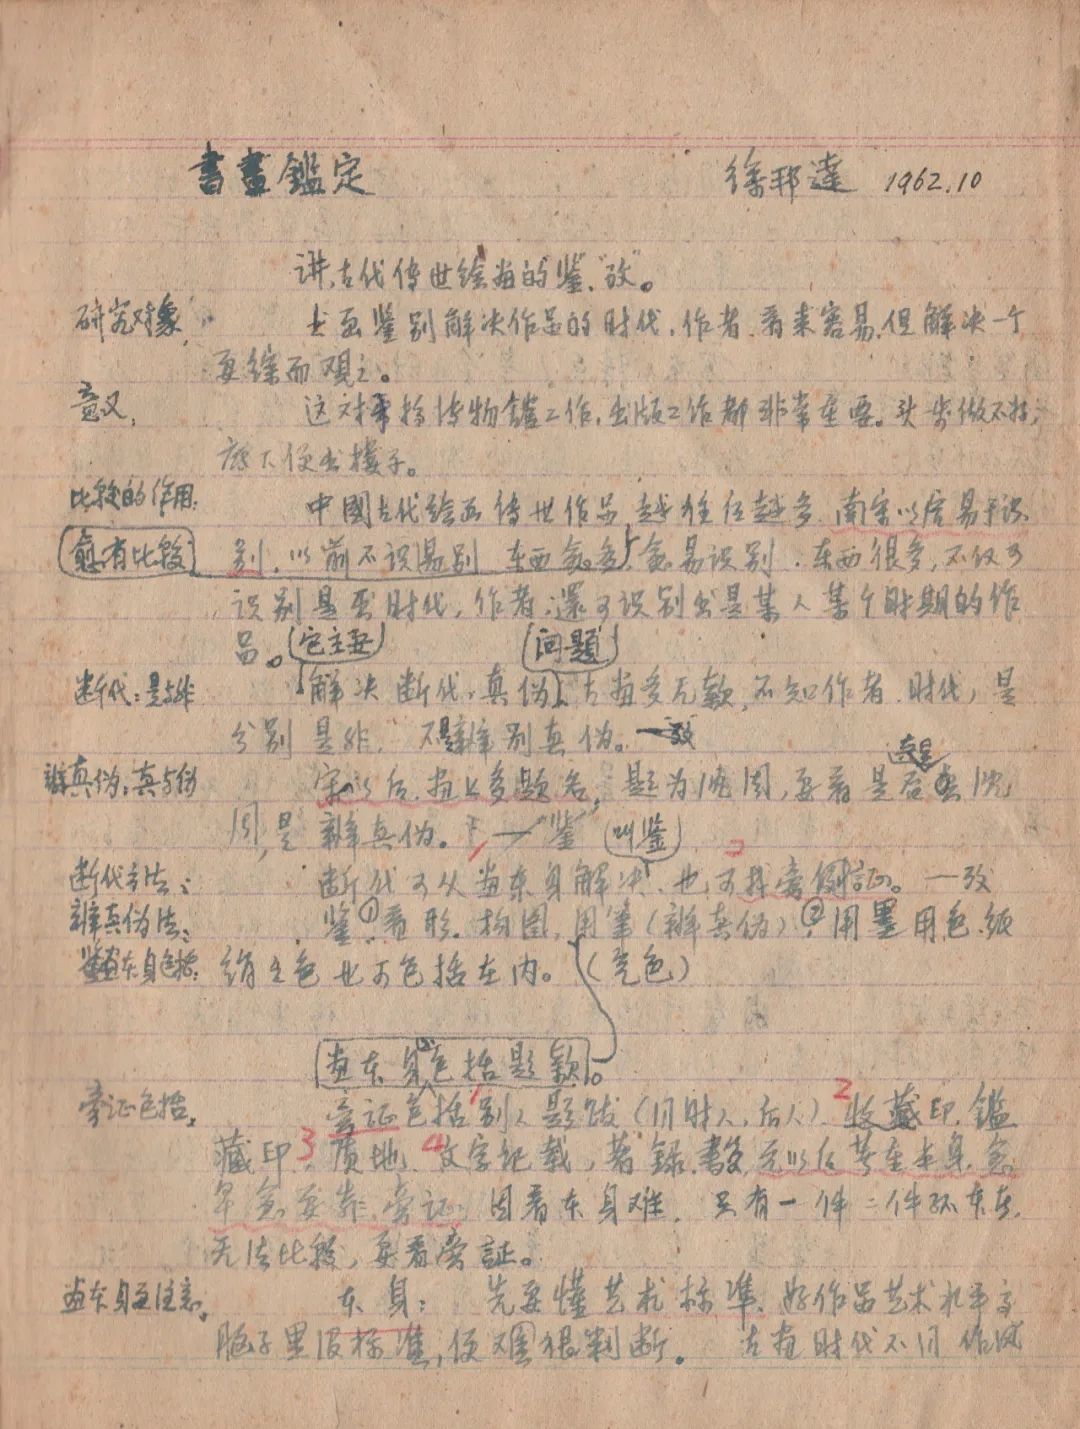 書畫鑑定 徐邦達 1962.10
讲古代传世绘画的"鉴""攷"。
研究对象, 书画鉴别解决作品的时代,作者.看来容易,但解决一个
要综而观之。
意义, 这对于搞博物馆工作,出版工作都非常重要。头步做不好,
底下便出搂子。
比较的作用: 中國古代绘画传世作品,越往后越多.南宋以后易于识
愈有比较 别,以前不识易别 东西愈多,愈易识别.东西很多,不仅可
识别是否时代,作者;還可识别出是某人某个时期的作
品。它主要 问题
断代:是与非 解决断代,真伪,古画多无款,不知作者.时代,是
分别是非, 不是辨别真伪。一攷
辨真伪:真与伪 宋以后.画上多题名,题为沈周,要看是否真是沈
周,是辨真伪。一"鉴" 叫鉴
断代方法: 断代可从画本身解决,也可找旁侧証。一攷
辨真伪法: 鉴:①看形.构图,用笔(辨真伪)②用墨用色.纸
鉴画本身包括: 绢之色也可包括在内。(气色)
画本身包括题款。
旁证包括, 旁证包括1别人题跋(同时人,后人)2收藏印.鑑
藏印,3质地.4文字记载,著録.書多,元以后着重本身,愈
早愈要靠旁证,因看本身难. 只有一件二件孤本在,
无法比较,要看旁証。
画本身要注意。 本身: 先要懂艺术标準,好作品艺术水平高
脑子里没标準,便很难判断. 古画时代不同作风